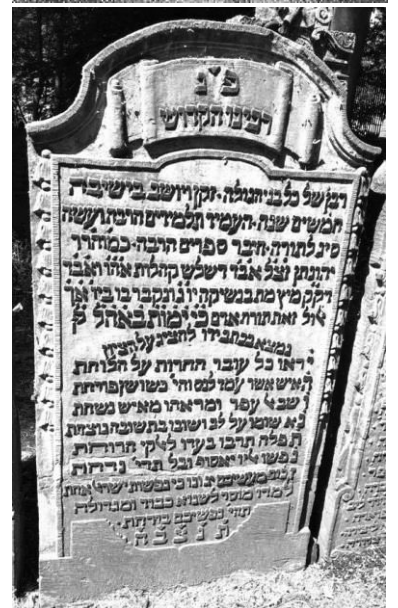 פ״נ
רבינו הקדוש
רבן של כל בני הגולה · זקן ויושב בישיבה
חמשים שנה · העמיד תלמידים הרבה ועשה
סיג לתורה · חיבר ספרים הרבה · כמוהרר
יהונתן זצל אבד דשלש קהלות אהו ואבד
דקק מיץ מת בנשיקה יו ג ונקבר בו ביו
זאת תורת אדם כי ימות באהל
נמצא בכתב ידו
יראו כל עובר החרות על הלוחת
איש אשר עמד לנס והי׳ כשושן פורחת
ושב אל עפר ומראהו מאיש נשחת
נא שומו על לב ושובו בתשובה נוצחת
תפלה תרבו בעדו לאלקי הרוחות
נפשו אליו יאסוף ובל תהי׳ נדחת
כי נפשות ישראל אחת
למדו מוסר לשנוא כבוד ומגדולה
תהי נפשיכם בורחת
ת נ צ ב ה